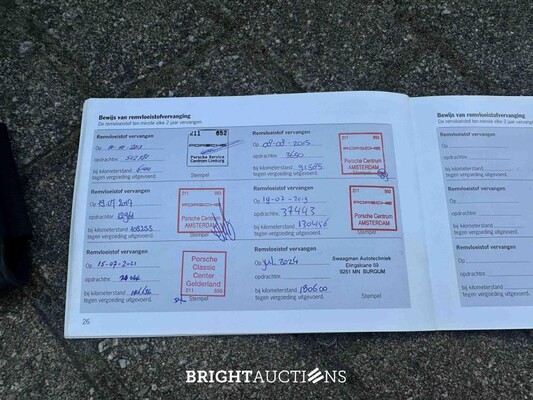 Bewijs van remvloeistofvervanging
De remvloeistof ten minste elke 2 jaar vervangen.
Remvloeistof vervangen
Op
opdrachtnr.
bij kilometerstand
tegen vergoeding uitgevoerd.
211 652
PORSCHE
Porsche Service
Centrum Limburg
Stempel
Remvloeistof vervangen
Op 08-09-2015
opdrachtnr. 3650
bij kilometerstand 91585
tegen vergoeding uitgevoerd.
211 550
PORSCHE
Porsche Centrum
AMSTERDAM
Stempel
Remvloeistof vervangen
Op 19.07.2017
opdrachtnr.
bij kilometerstand 108255
tegen vergoeding uitgevoerd.
211 550
PORSCHE
Porsche Centrum
AMSTERDAM
Stempel
Remvloeistof vervangen
Op 19-07-2019
opdrachtnr. 37443
bij kilometerstand 130456
tegen vergoeding uitgevoerd.
211 550
PORSCHE
Porsche Centrum
AMSTERDAM
Stempel
Remvloeistof vervangen
Op 15-07-2021
opdrachtnr.
bij kilometerstand
tegen vergoeding uitgevoerd.
Porsche
Classic
Center
Gelderland
211 550
Stempel
Remvloeistof vervangen
Op juli 2024
opdrachtnr.
bij kilometerstand 180600
tegen vergoeding uitgevoerd.
Swaagman Autotechniek
9251 MN BURGUM
Stempel
26
Bewijs van remvloeistofvervanging
De remvloeistof ten minste elke 2
Remvloeistof vervangen
Op
opdrachtnr.
bij kilometerstand
tegen vergoeding uitgevoerd.
Remvloeistof vervangen
Op
opdrachtnr.
bij kilometerstand
tegen vergoeding uitgevoerd.
Remvloeistof vervangen
Op
opdrachtnr.
bij kilometerstand
tegen vergoeding uitgevoerd.
BRIGHTAUCTIONS